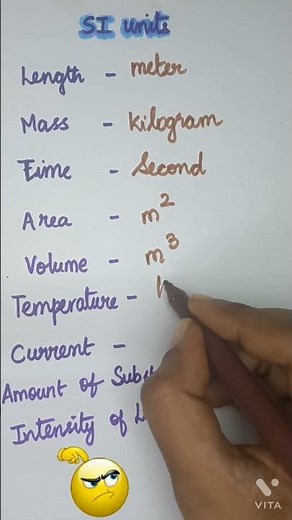 SI units
Length - meter
Mass - Kilogram
Time - Second
Area - m²
Volume - m³
Temperature -
Current -
Amount of
Intensity of
VITA